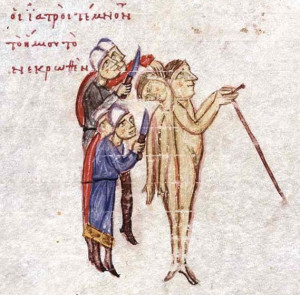 οἱ ἰατροὶ τέμνον
τὸ τὸ
νεκρωθὲν